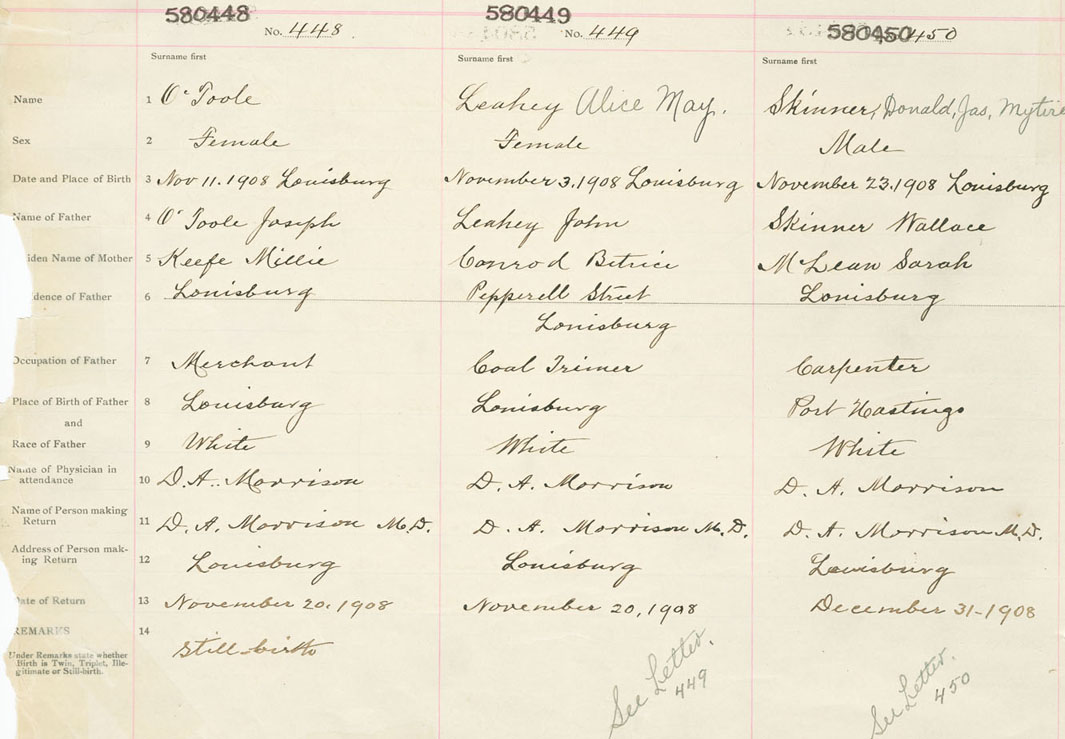 580448 580449 580450
No. 448. No. 449 450
Surname first Surname first Surname first
Name 1 O'Toole Leahey Alice May. Skinner, Donald, Jas,
Sex 2 Female Female Male
Date and Place of Birth 3 Nov 11. 1908 Louisburg November 3. 1908 Louisburg November 23. 1908 Louisburg
Name of Father 4 O'Toole Joseph Leahey John Skinner Wallace
iden Name of Mother 5 Keefe Millie Conrod Betrice McLean Sarah
idence of Father 6 Louisburg Pepperell Street Louisburg
Louisburg
Occupation of Father 7 Merchant Coal Trimer Carpenter
Place of Birth of Father 8 Louisburg Louisburg Port Hastings
and
Race of Father 9 White White White
Name of Physician in
attendance 10 D. A. Morrison D. A. Morrison D. A. Morrison
Name of Person making
Return 11 D. A. Morrison M.D. D. A. Morrison M.D. D. A. Morrison M.D.
Address of Person mak-
ing Return 12 Louisburg Louisburg Louisburg
Date of Return 13 November 20, 1908 November 20, 1908 December 31-1908
REMARKS 14
Still-birth
Under Remarks state whether
Birth is Twin, Triplet, Ille-
gitimate or Still-birth.
See Letter. 449
See Letter. 450